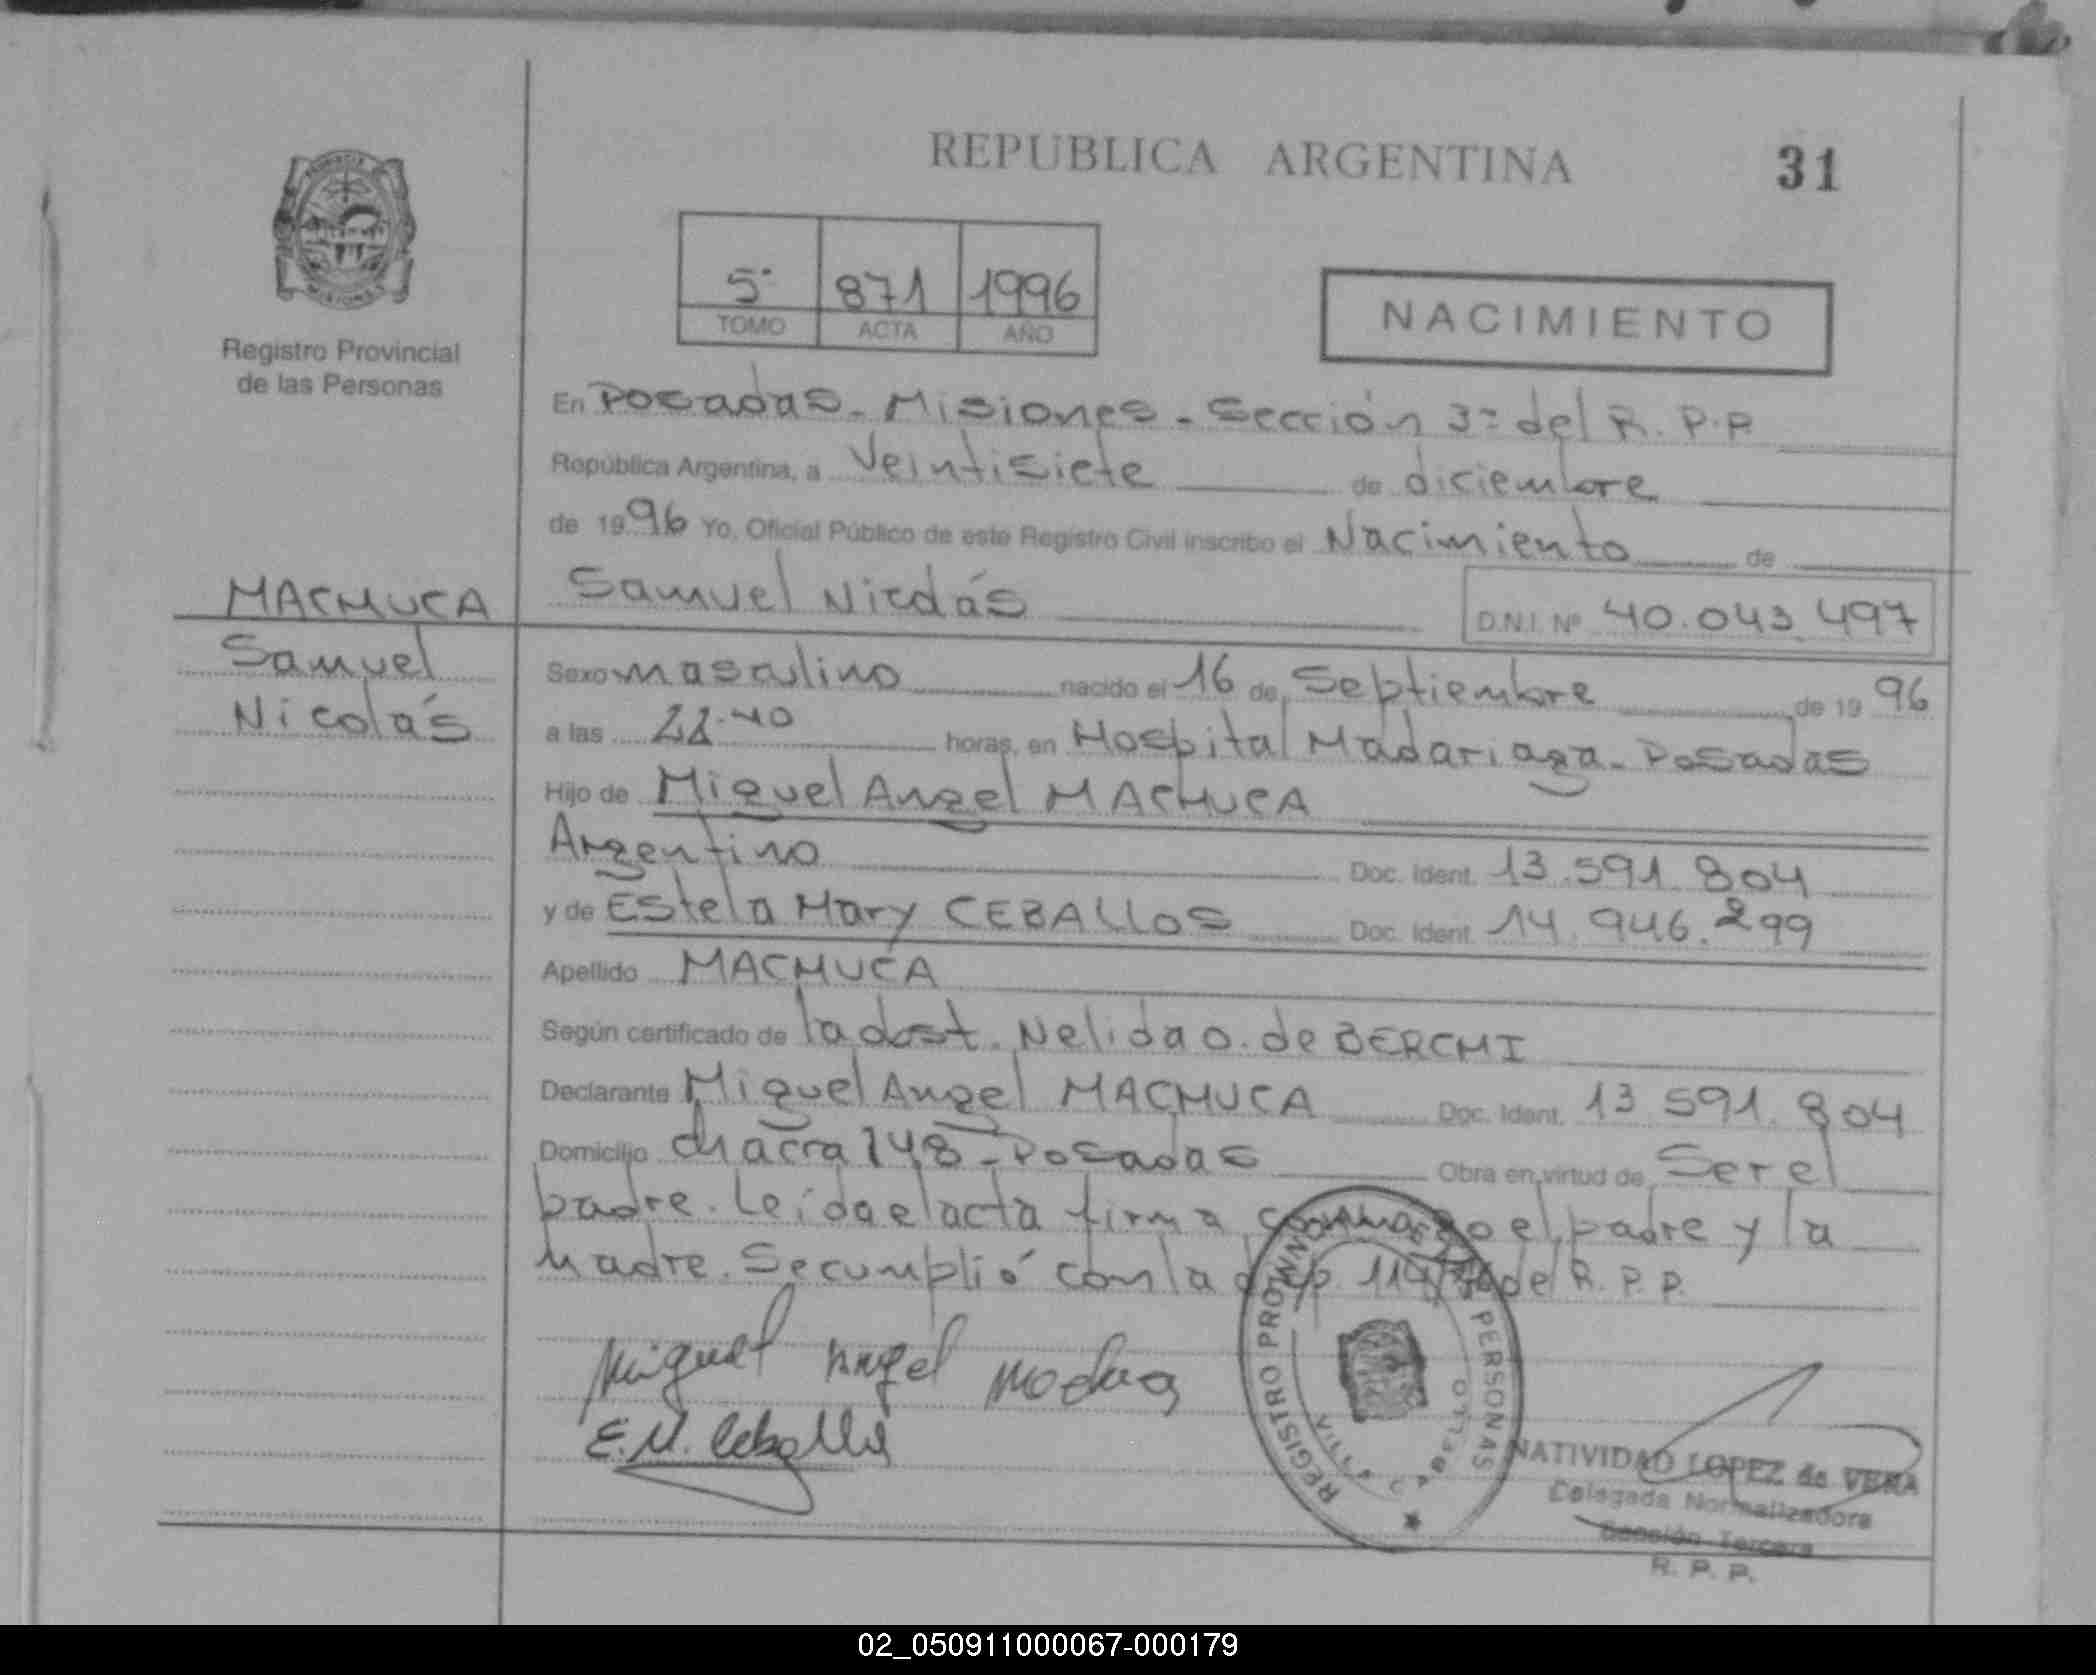 REPUBLICA ARGENTINA
31
5º 871 1996
TOMO ACTA AÑO
NACIMIENTO
Registro Provincial
de las Personas
En Posadas - Misiones - Sección 3ª del R.P.P.
República Argentina, a Veintisiete de diciembre
de 1996 Yo, Oficial Público de este Registro Civil inscribo el Nacimiento de
MACHUCA Samuel Nicolás D.N.I. Nº 40.043.497
Samuel
Nicolás
Sexo masculino nacido el 16 de Septiembre de 1996
a las horas, en Hospital Madariaga - Posadas
Hijo de Miguel Angel MACHUCA
Argentino Doc. Ident. 13.591.804
y de Estela Mary CEBALLOS Doc. Ident. 14.946.299
Apellido MACHUCA
Según certificado de la obst. Nelida O. de BERCHI
Declarante Miguel Angel MACHUCA Doc. Ident. 13.591.804
Domicilio chacra 148 - Posadas Obra en virtud de Ser el
padre. Leída el acta firma conmigo el padre y la
madre. Se cumplió con la disp. del R.P.P.
Miguel Angel Machuca
E.M. Ceballos
REGISTRO PROVINCIAL DE LAS PERSONAS
NATIVIDAD LOPEZ de VERA
Delegada Normalizadora
Sección Tercera
R. P. P.
02_050911000067-000179